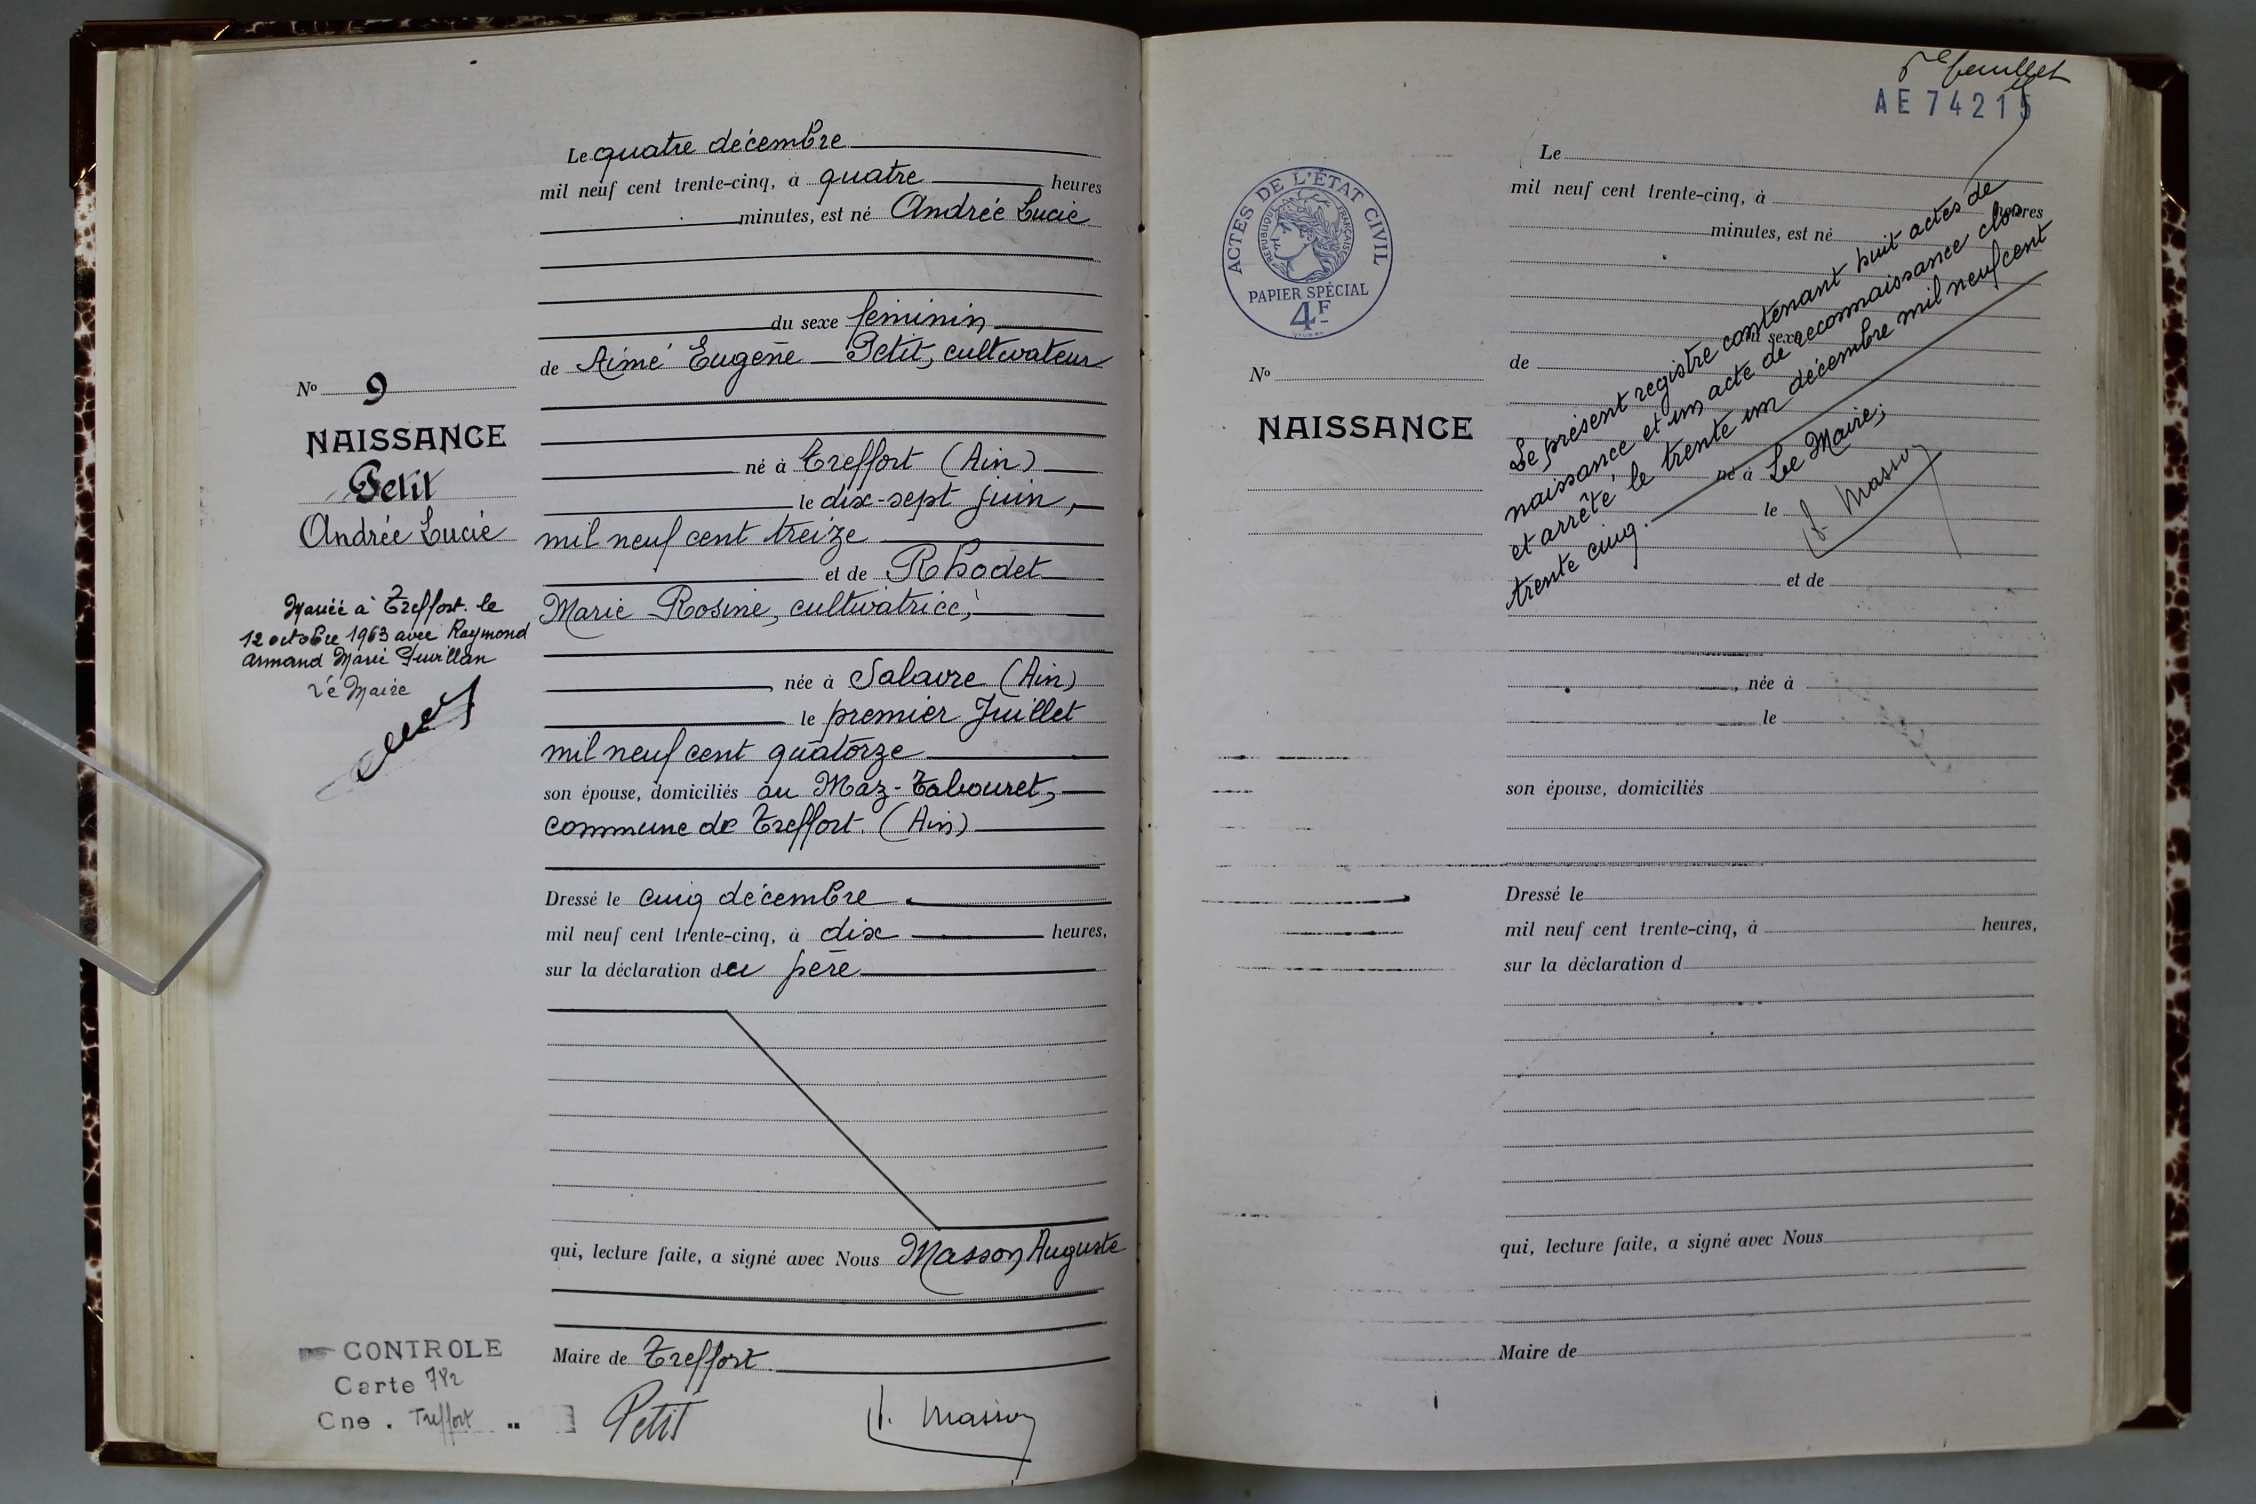 Le quatre décembre
mil neuf cent trente-cinq, à quatre heures
minutes, est né Andrée Lucie
du sexe féminin
de Aimé Eugène Petit, cultivateur
né à Treffort (Ain)
le dix-sept juin,
mil neuf cent treize
et de Rhodet
Marie Rosine, cultivatrice,
née à Salavre (Ain)
le premier Juillet
mil neuf cent quatorze
son épouse, domiciliés au Maz-Tabouret,
commune de Treffort. (Ain)
Dressé le cinq décembre
mil neuf cent trente-cinq, à dix heures,
sur la déclaration du père
qui, lecture faite, a signé avec Nous Masson Auguste
Maire de Treffort
Petit
A. Masson
No 9
NAISSANCE
Petit
Andrée Lucie
Mariée à Treffort le
12 octobre 1963 avec Raymond
Armand Marie
Le Maire
CONTROLE
Carte 782
Cne . Treffort
feuillet
AE 74215
ACTES DE L'ÉTAT CIVIL
RÉPUBLIQUE FRANÇAISE
PAPIER SPÉCIAL
4F
No
NAISSANCE
Le
mil neuf cent trente-cinq, à heures
minutes, est né
du sexe
de
né à
le
et de
, née à
le
son épouse, domiciliés
Dressé le
mil neuf cent trente-cinq, à heures,
sur la déclaration d
qui, lecture faite, a signé avec Nous
Maire de
Le présent registre contenant huit actes de
naissance et un acte de reconnaissance clos
et arrêté le trente un décembre mil neuf cent
trente cinq.
Le Maire,
A. Masson